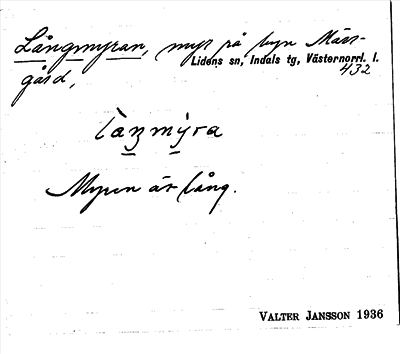 Långmyran, myr på byn Märs-
Lidens sn, Indals tg, Västernorrl. l.
gård, 432
làŋmy̆ra
Myren är lång.
VALTER JANSSON 1936